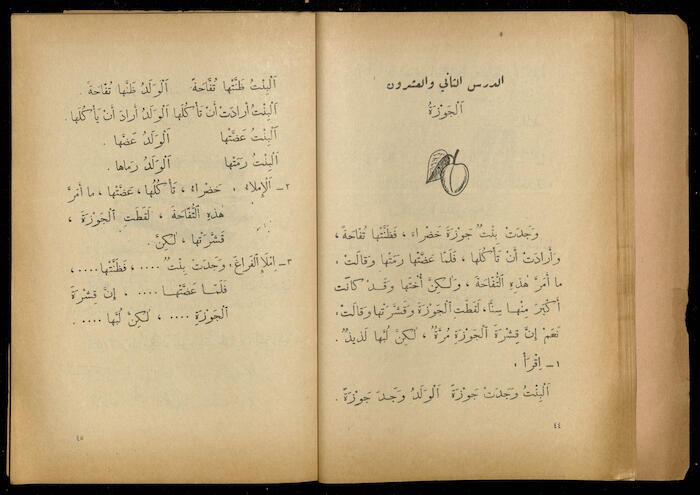 الدرس الثاني والعشرون
اَلْجَوْزَةُ
وَجَدَتْ بِنْتٌ جَوْزَةً خَضْراءَ ، فَظَنَّتْها تُفّاحَةً ،
وَأَرادَتْ أَنْ تَأْكُلَها ، فَلَمّا عَضَّتْها رَمَتْها وَقالَتْ :
ما أَمَرَّ هٰذِهِ التُّفّاحَةَ ، وَلٰكِنَّ أُخْتَها وَقَدْ كانَتْ
أَكْبَرَ مِنْها سِنًّا، لَقَطَتِ الْجَوْزَةَ وَقَشَّرَتْها وَقالَتْ :
نَعَمْ إِنَّ قِشْرَةَ الْجَوْزَةِ مُرَّةٌ ، لٰكِنَّ لُبَّها لَذيذٌ .
١ – اِقْرَأْ :
اَلْبِنْتُ وَجَدَتْ جَوْزَةً اَلْوَلَدُ وَجَدَ جَوْزَةً .
٤٤
اَلْبِنْتُ ظَنَّتْها تُفّاحَةً اَلْوَلَدُ ظَنَّها تُفّاحَةً .
اَلْبِنْتُ أَرادَتْ أَنْ تَأْكُلَها اَلْوَلَدُ أَرادَ أَنْ يَأْكُلَها .
اَلْبِنْتُ عَضَّتْها اَلْوَلَدُ عَضَّها .
اَلْبِنْتُ رَمَتْها اَلْوَلَدُ رَماها .
٢ – اَلْإِمْلاءُ : خَضْراءُ ، تَأْكُلُها ، عَضَّتْها ، ما أَمَرَّ
هٰذِهِ التُّفّاحَةَ ، لَقَطَتِ الْجَوْزَةَ ،
قَشَّرَتْها ، لٰكِنَّ .
٣ – اِمْلَإِ الْفَراغَ : وَجَدَتْ بِنْتٌ .... ، فَظَنَّتْها .... ،
فَلَمّا عَضَّتْها .... ، إِنَّ قِشْرَةَ
الْجَوْزَةِ .... ، لٰكِنَّ لُبَّها .... .
٤٥